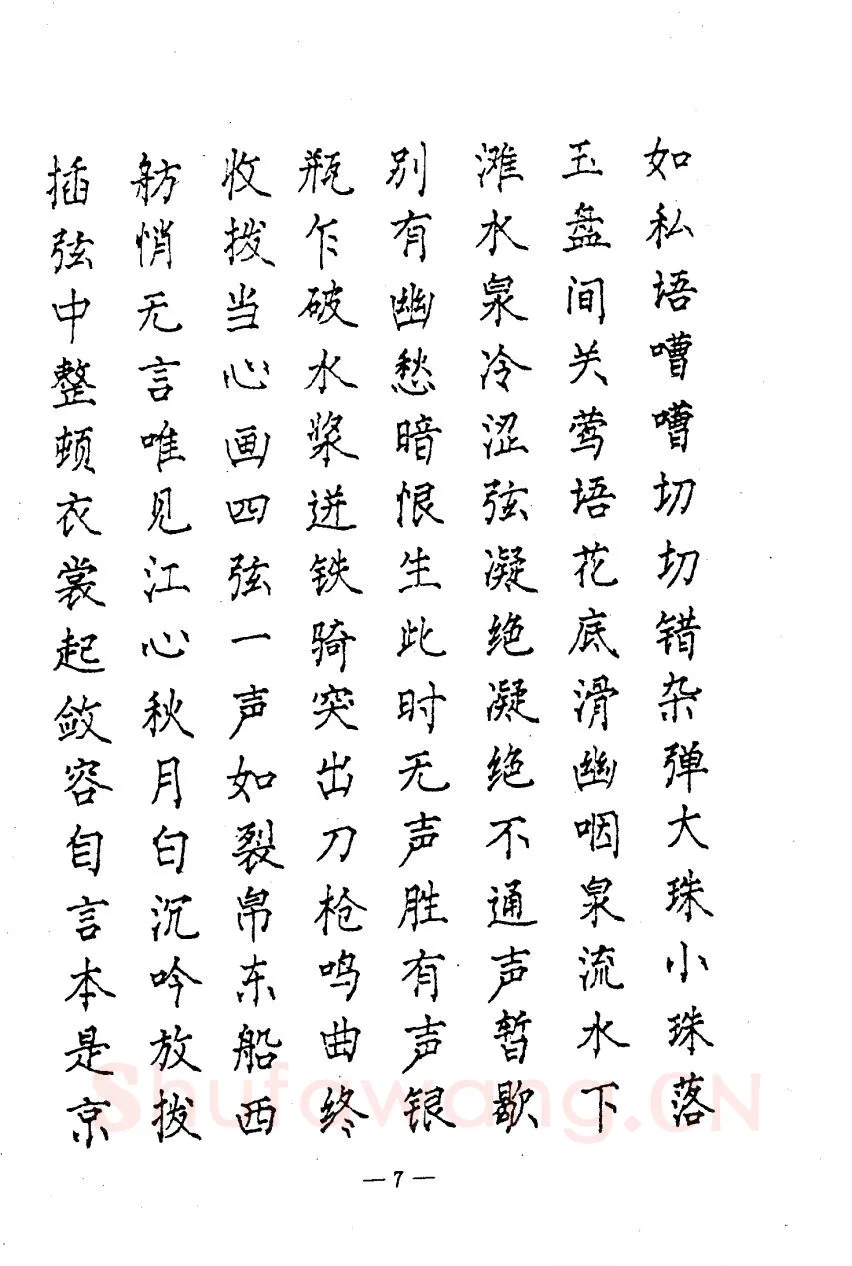 如私语嘈嘈切切错杂弹大珠小珠落
玉盘间关莺语花底滑幽咽泉流水下
滩水泉冷涩弦凝绝凝绝不通声暂歇
别有幽愁暗恨生此时无声胜有声银
瓶乍破水浆迸铁骑突出刀枪鸣曲终
收拨当心画四弦一声如裂帛东船西
舫悄无言唯见江心秋月白沉吟放拨
插弦中整顿衣裳起敛容自言本是京
Shufawang.CN
—7—